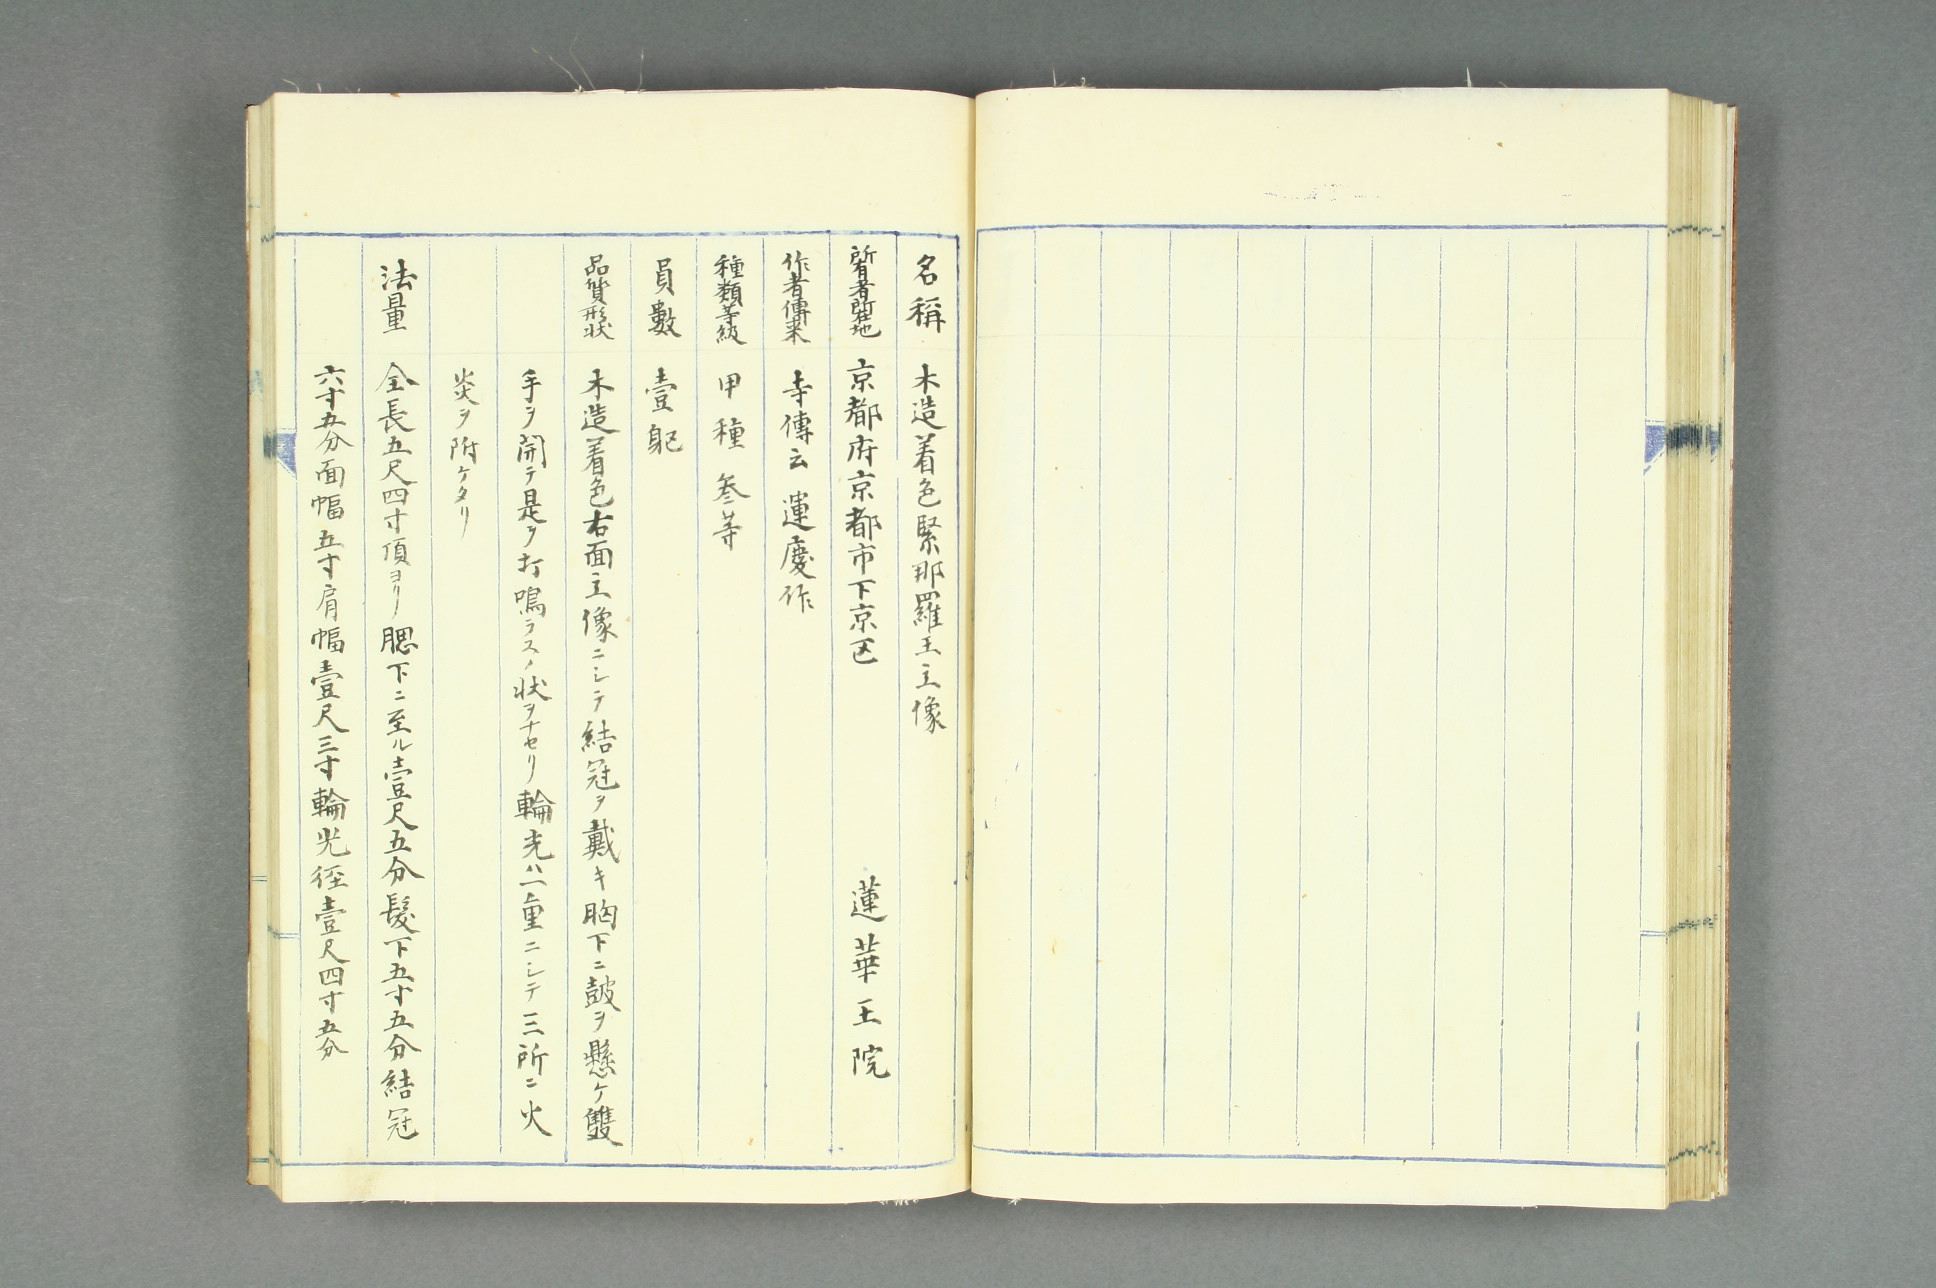 名稱 木造着色緊那羅王立像
所有者所在地 京都府京都市下京区 蓮華王院
作者傳来 寺傳云運慶作
種類等級 甲種 叁等
員數 壹躯
品質形状 木造着色右面立像ニシテ結冠ヲ戴キ胸下ニ皷ヲ懸ケ雙
手ヲ開テ是ヲ打鳴ラスノ状ヲナセリ輪光ハ一重ニシテ三所ニ火
炎ヲ附ケタリ
法量 全長五尺四寸頂ヨリ腮下ニ至ル壹尺五分髮下五寸五分結冠
六寸五分面幅五寸肩幅壹尺三寸輪光径壹尺四寸五分